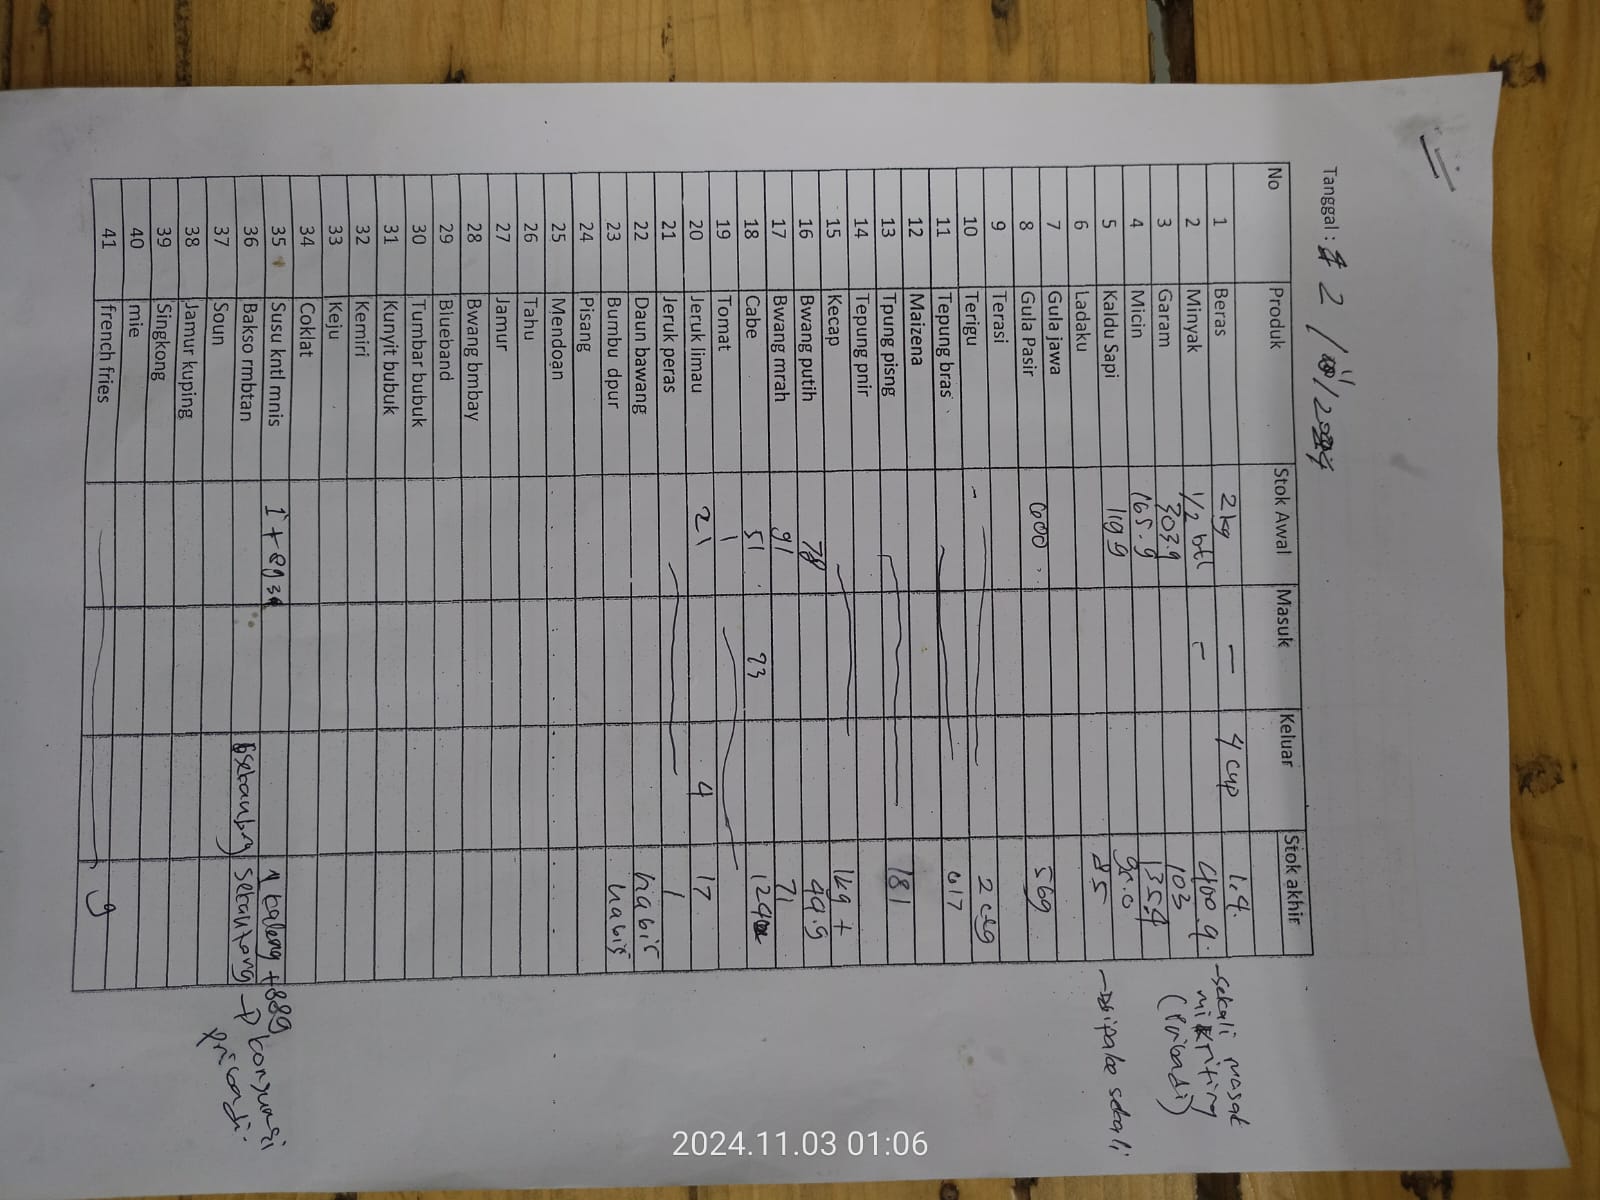 Tanggal : 2 / 11 / 2024
No Produk Stok Awal Masuk Keluar Stok akhir
1 Beras 2kg — 4 cup 1,4.
2 Minyak 1/2 btl - 400.g.
3 Garam 303.g 103
4 Micin 165.g 135.4
5 Kaldu Sapi 119 g 95.0
6 Ladaku 85
7 Gula jawa
8 Gula Pasir 600 569
9 Terasi
10 Terigu - 2
11 Tepung bras 617
12 Maizena
13 Tpung pisng 181
14 Tepung pnir
15 Kecap 1kg +
16 Bwang putih 78 49.9
17 Bwang mrah 91 71
18 Cabe 51 124
19 Tomat 1
20 Jeruk limau 21 4 17
21 Jeruk peras 1
22 Daun bawang habis
23 Bumbu dpur habis
24 Pisang
25 Mendoan
26 Tahu
27 Jamur
28 Bwang bmbay
29 Blueband
30 Tumbar bubuk
31 Kunyit bubuk
32 Kemiri
33 Keju
34 Coklat
35 Susu kntl mnis 1 + 893 1 kaleng +889
36 Bakso rmbtan sekantong → konsumsi
pribadi.
37 Soun
38 Jamur kuping
39 Singkong
40 mie
41 french fries 9
-sekali masak
(Pribadi)
dipake sekali
2024.11.03 01:06